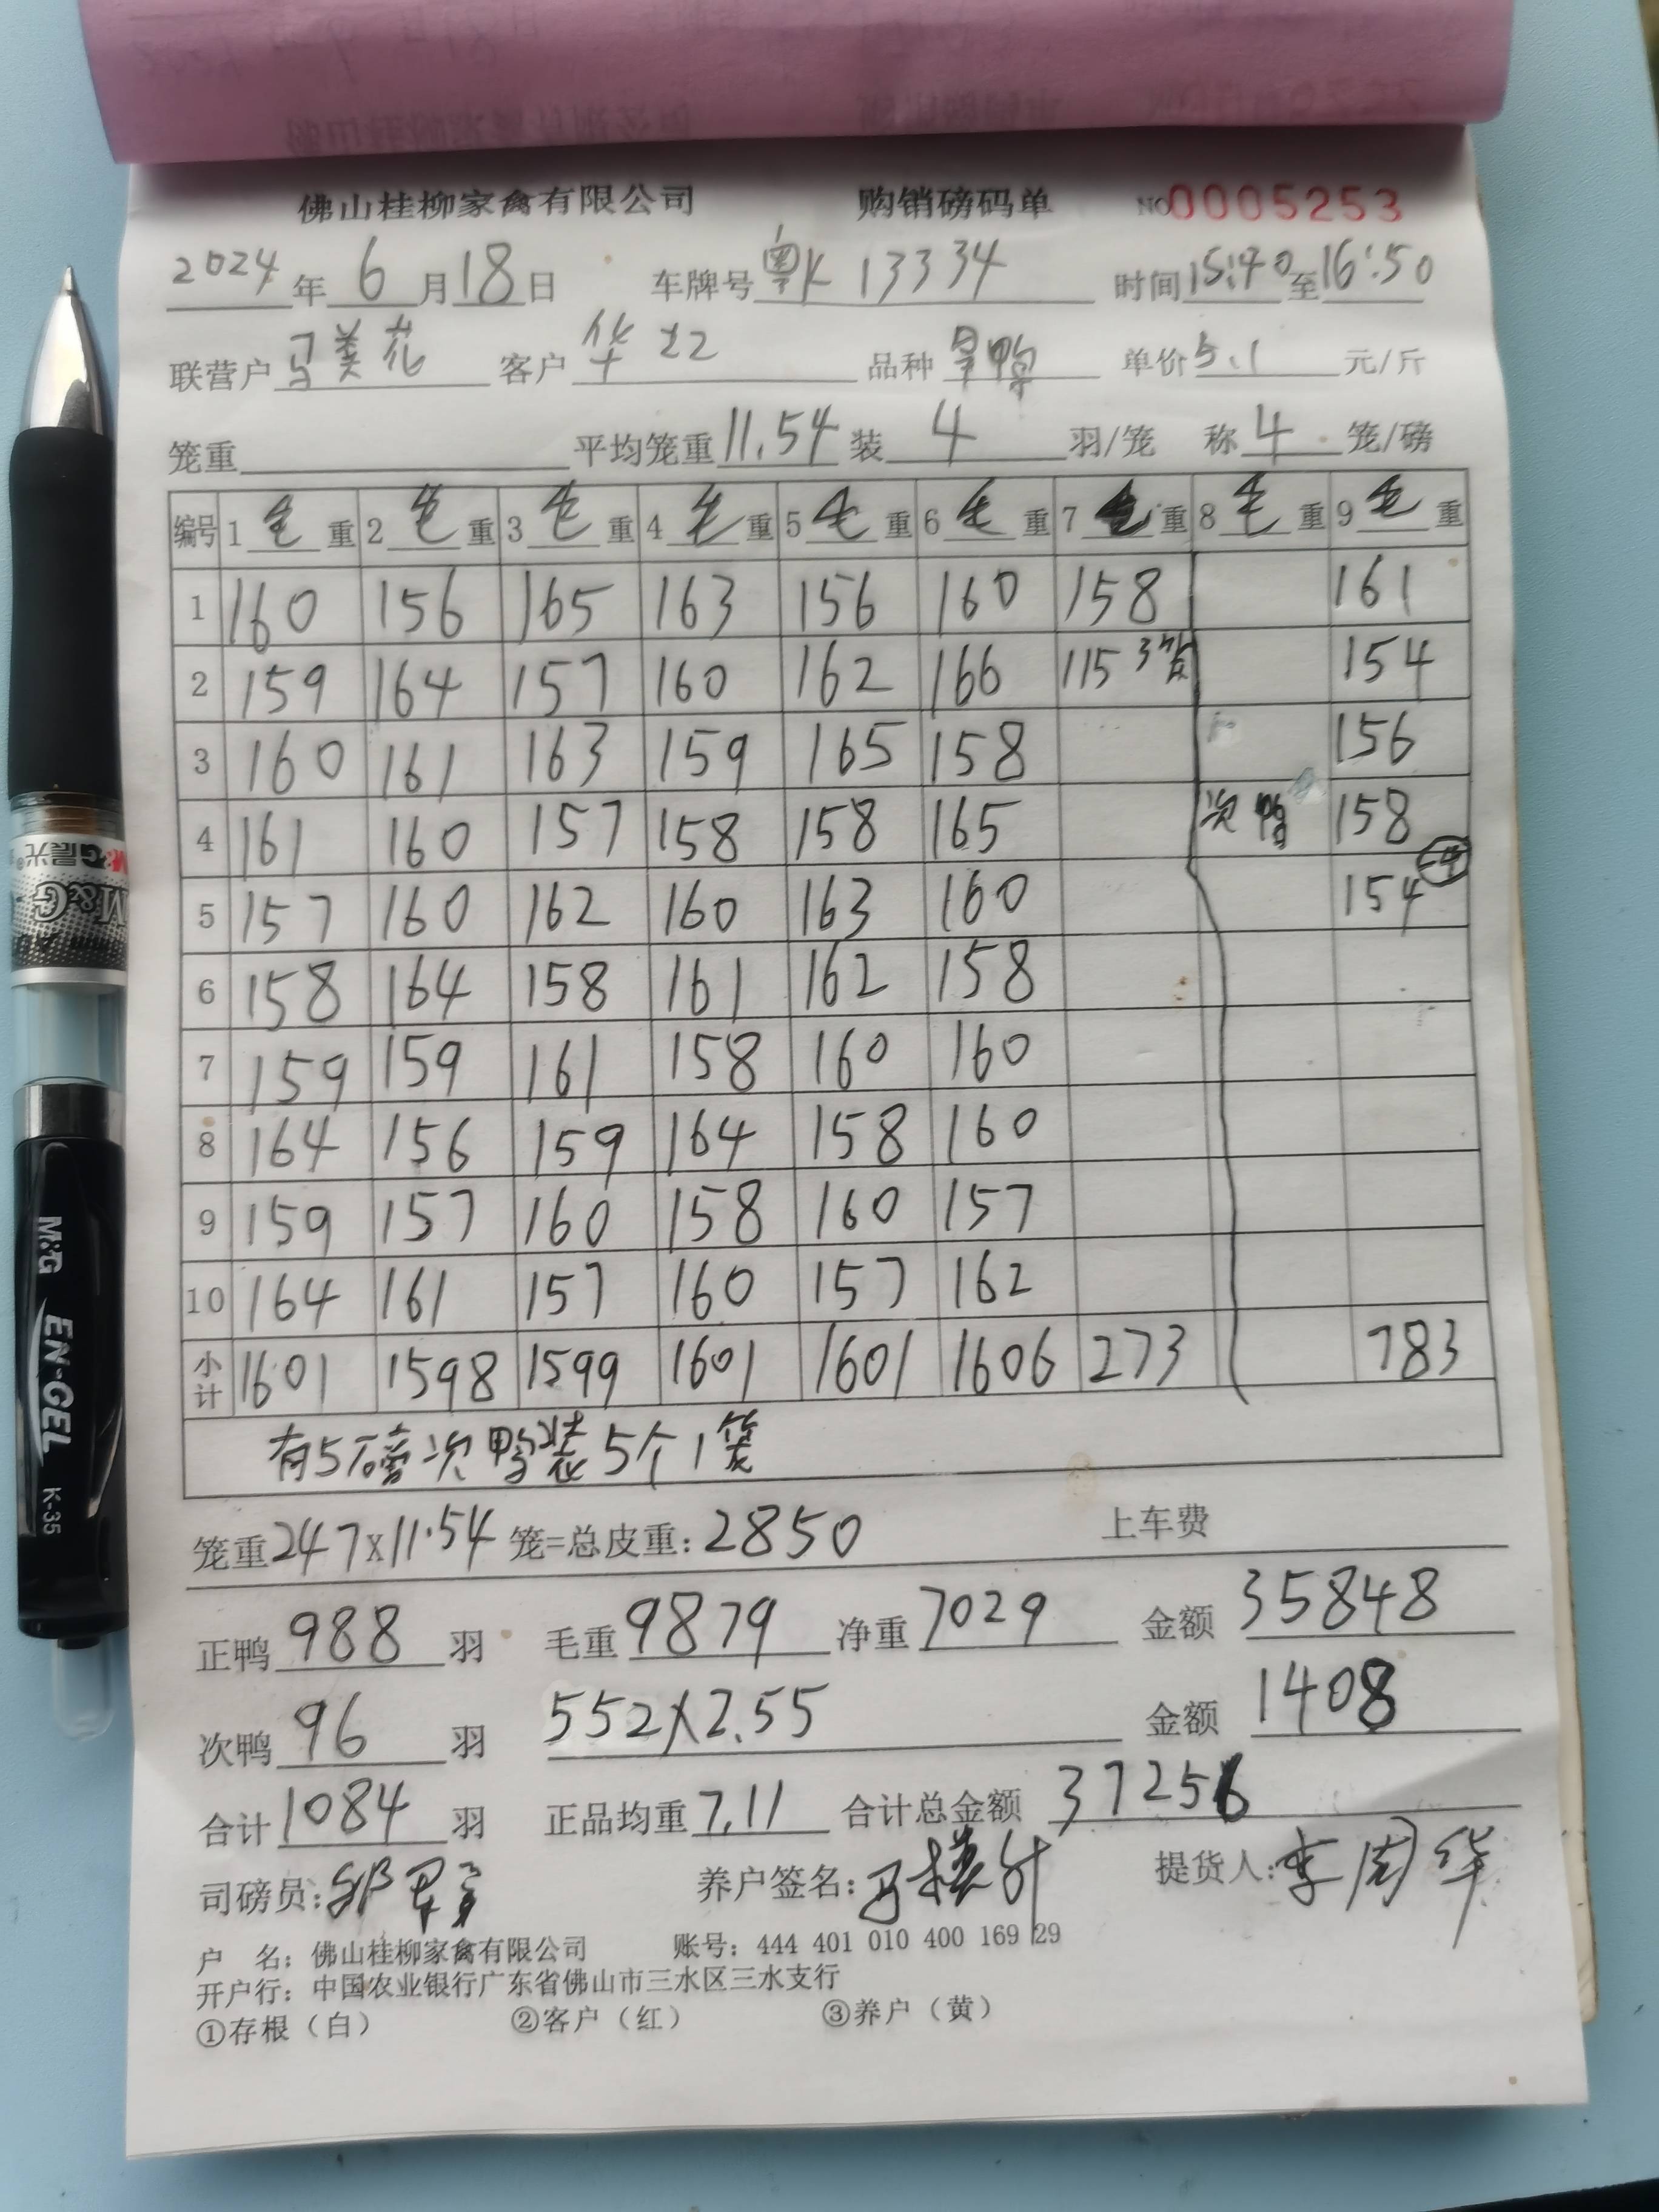 佛山桂柳家禽有限公司 购销磅码单 NO 0005253
2024年6月18日 车牌号 粤K 13334 时间 15:40 至 16:50
联营户 马美花 客户 华 品种 旱鸭 单价 5.1 元/斤
笼重 平均笼重 11.54 装 4 羽/笼 称 4 笼/磅
编号 1 毛 重 2 毛 重 3 毛 重 4 毛 重 5 毛 重 6 毛 重 7 毛 重 8 毛 重 9 毛 重
1 160 156 165 163 156 160 158 161
2 159 164 157 160 162 166 115 3笼 154
3 160 161 163 159 165 158 156
4 161 160 157 158 158 165 次鸭 158
5 157 160 162 160 163 160 154 -4
6 158 164 158 161 162 158
7 159 159 161 158 160 160
8 164 156 159 164 158 160
9 159 157 160 158 160 157
10 164 161 157 160 157 162
小计 1601 1598 1599 1601 1601 1606 273 783
有5磅次鸭装5个1笼
笼重 247x11.54 笼=总皮重: 2850 上车费
正鸭 988 羽 毛重 9879 净重 7029 金额 35848
次鸭 96 羽 552x2.55 金额 1408
合计 1084 羽 正品均重 7.11 合计总金额 37256
司磅员: 养户签名: 提货人: 李周华
户 名: 佛山桂柳家禽有限公司 账号: 444 401 010 400 169 29
开户行: 中国农业银行广东省佛山市三水区三水支行
①存根(白) ②客户(红) ③养户(黄)
M&G 晨光
M&G EN-GEL K-35